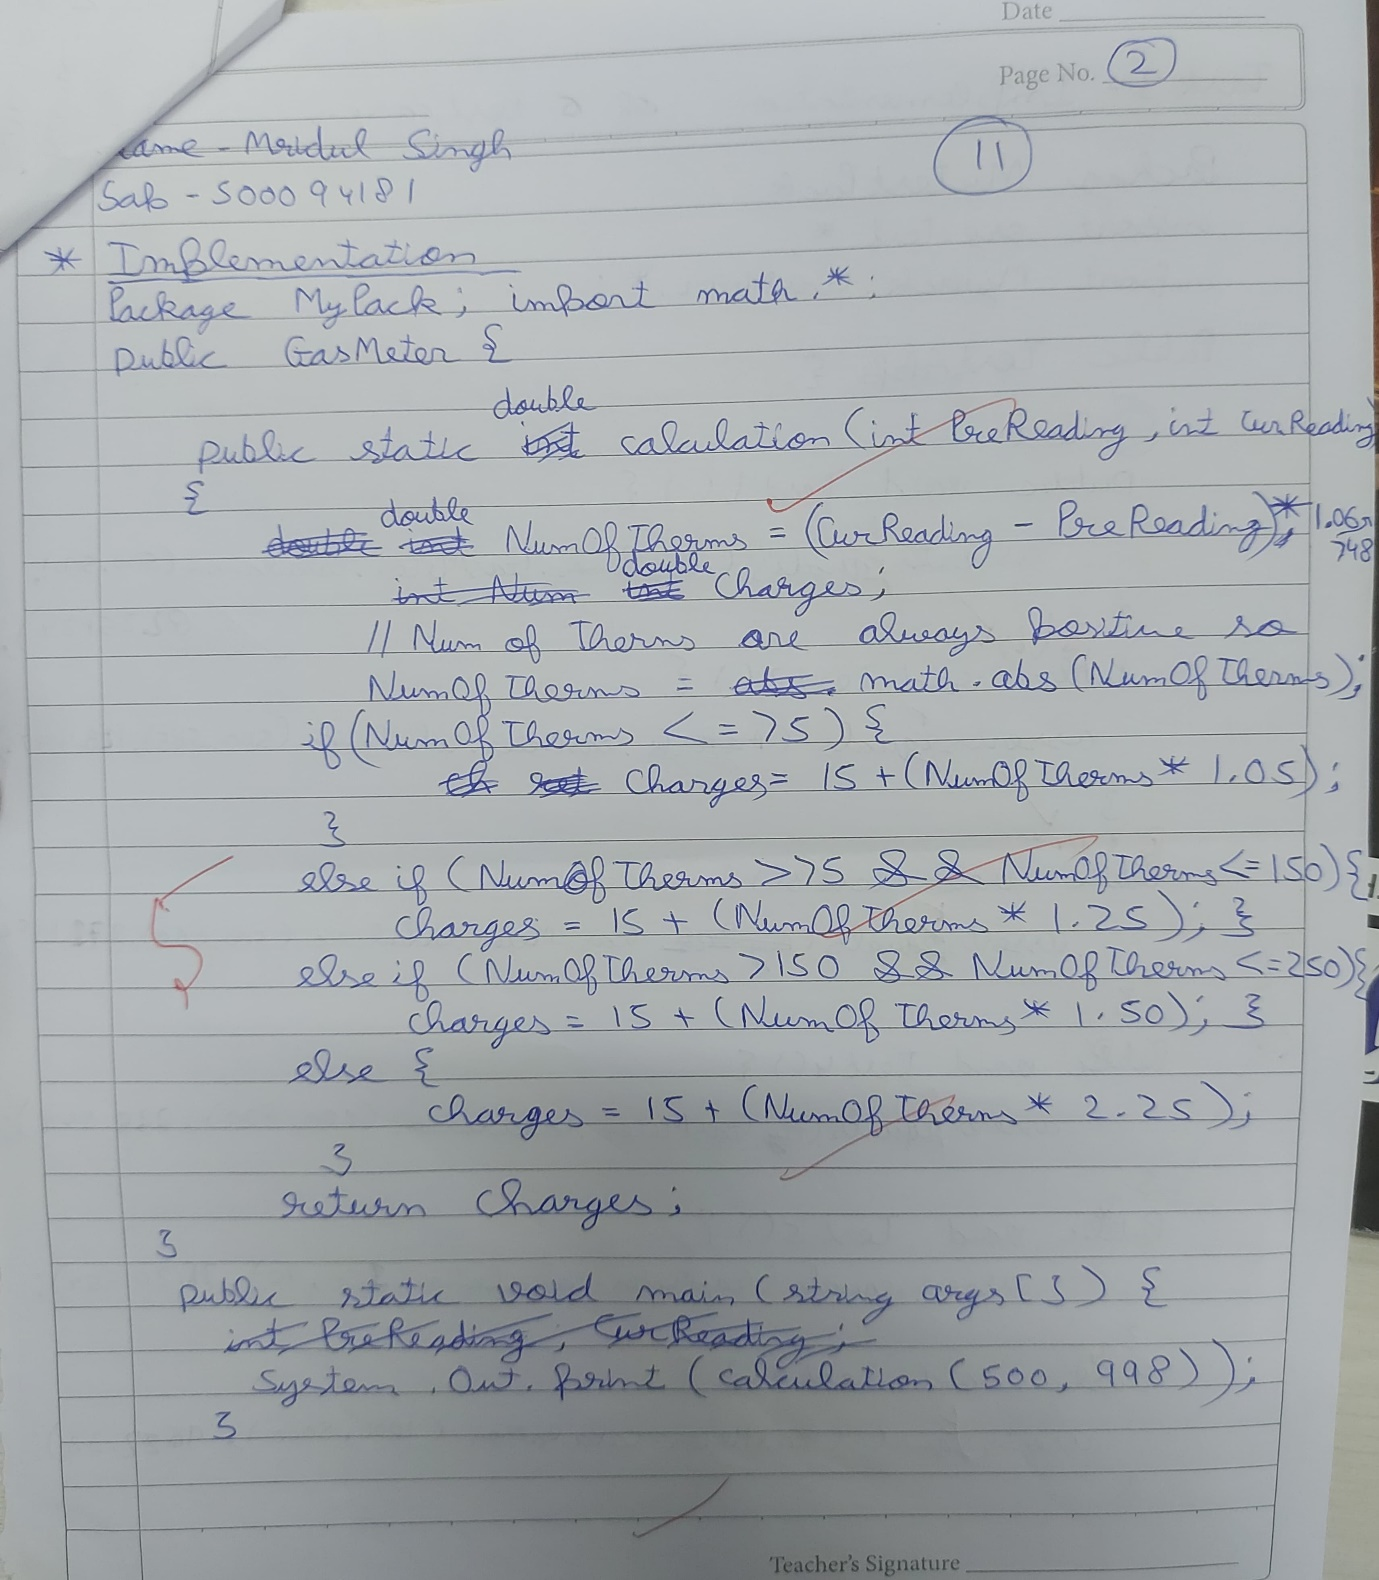 Date
Page No. 2
ame - Mridul Singh
11
Sap - 500094181
* Implementation
Package MyPack; import math.*;
public GasMeter {
double
public static int calculation (int PreReading, int CurReading)
{
double
double int NumOfTherms = (CurReading - PreReading)*; 1.06
748
double
int Num int Charges;
// Num of Therms are always positive so
NumOfTherms = abs. math.abs (NumOfTherms);
if (NumOfTherms <= 75) {
Charges = 15 + (NumOfTherms * 1.05);
}
else if (NumOfTherms > 75 && NumOfTherms <= 150) {
charges = 15 + (NumOfTherms * 1.25); }
else if (NumOfTherms > 150 && NumOfTherms <= 250) {
charges = 15 + (NumOfTherms * 1.50); }
else {
charges = 15 + (NumOfTherms * 2.25);
}
return Charges;
}
public static void main (string args []) {
int PreReading, CurReading;
System.Out.print (calculation (500, 998));
}
Teacher's Signature